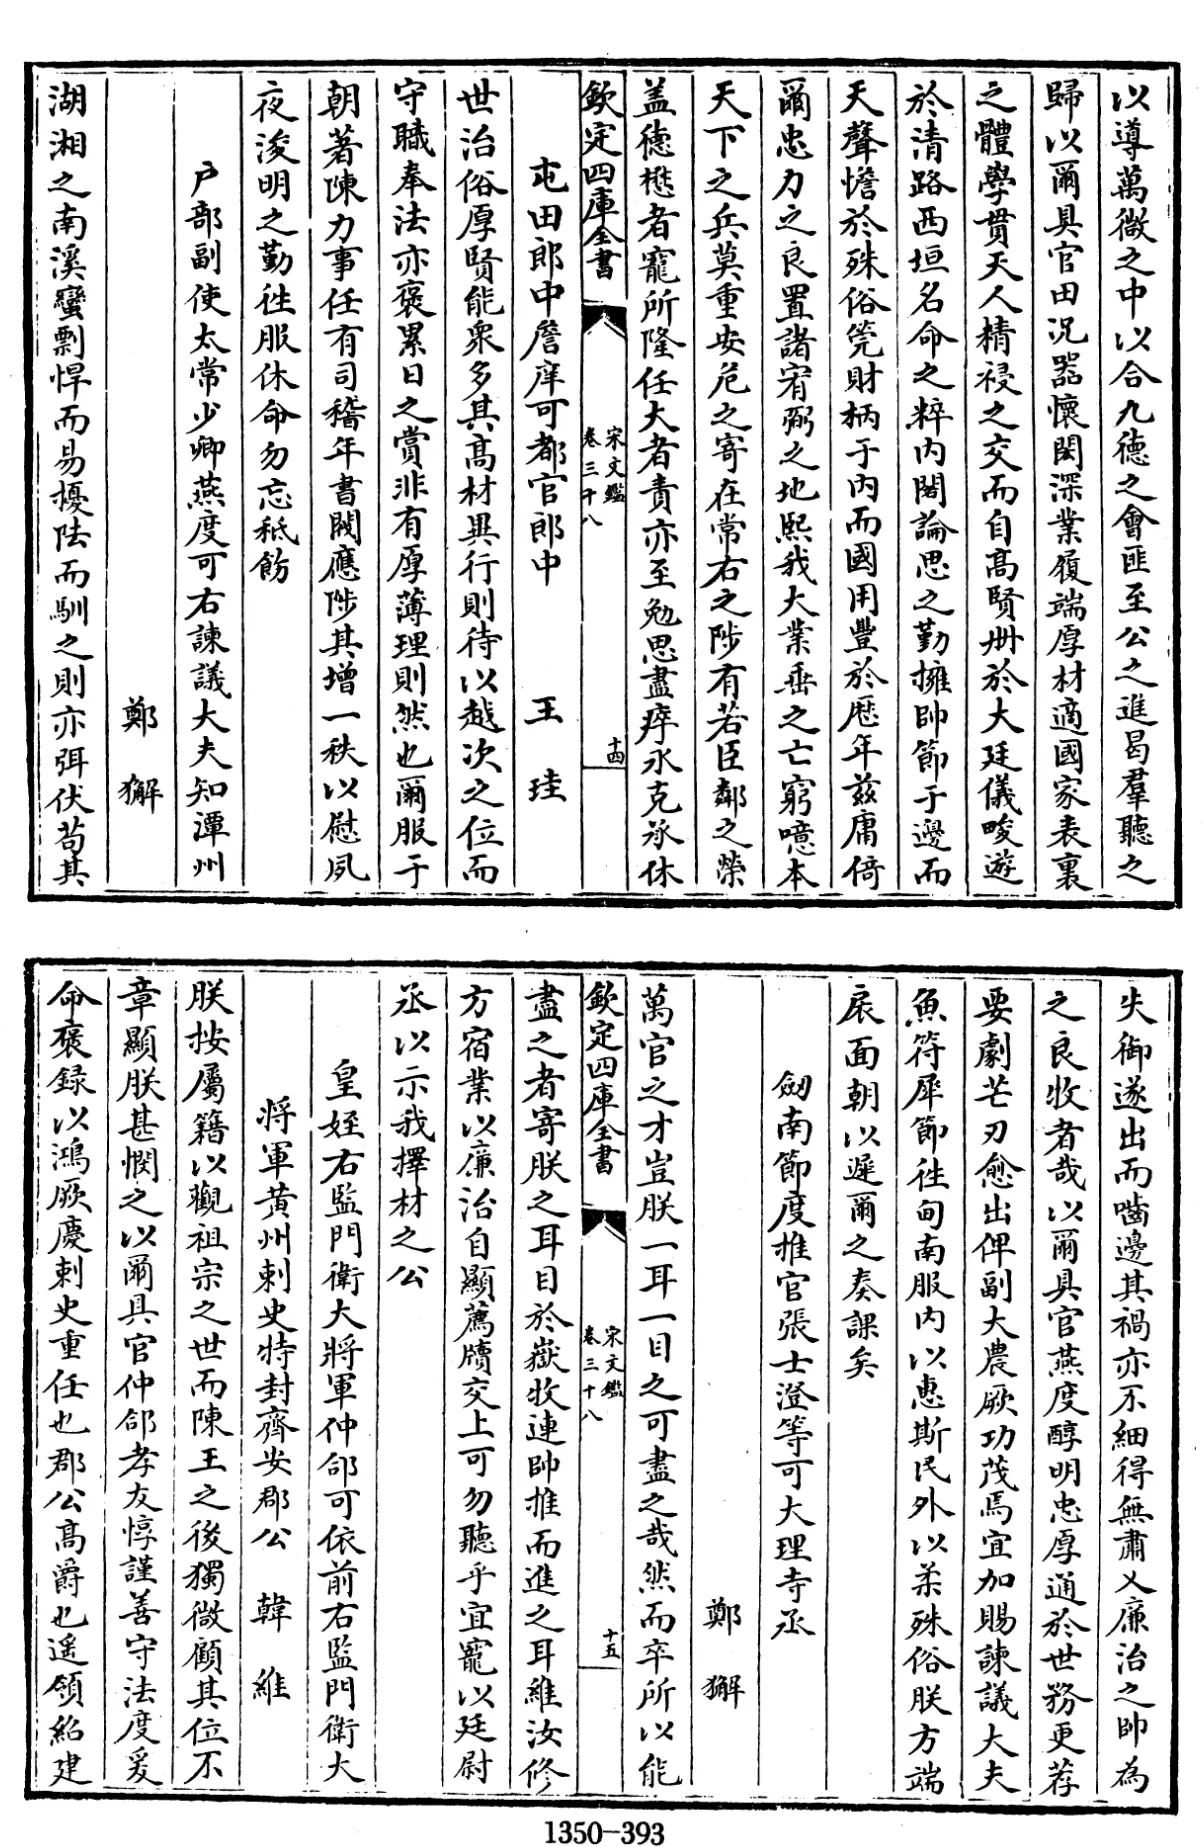 以導萬微之中以合九德之會匪至公之進曷羣聽之
歸以爾具官田况器懷閎深業履端厚材適國家表裏
之體學貫天人精祲之交而自高賢冊於大廷儀畯遊
於清路西垣名命之粹内閣論思之勤擁帥節于邊而
天聲憺於殊俗筦財柄于内而國用豐於歴年兹庸倚
爾忠力之良置諸宥弼之地熙我大業垂之亡窮噫本
天下之兵莫重安危之寄在常右之陟有若臣鄰之榮
盖德懋者寵所隆任大者責亦至勉思盡瘁永克承休
欽定四庫全書
宋文鑑
卷三十八
十四
屯田郎中詹庠可都官郎中 王珪
世治俗厚賢能衆多其髙材異行則待以越次之位而
守職奉法亦褒累日之賞非有厚薄理則然也爾服于
朝著陳力事任有司稽年書閥應陟其增一秩以慰夙
夜浚明之勤徃服休命勿忘祗飭
户部副使太常少卿燕度可右諫議大夫知潭州
鄭獬
湖湘之南溪蠻剽悍而易擾陆而馴之則亦弭伏苟其
失御遂出而嚙邊其禍亦不細得無肅乂廉治之帥為
之良牧者哉以爾具官燕度醇明忠厚通於世務更荐
要劇芒刃愈出俾副大農厥功茂焉宜加賜諫議大夫
魚符犀節徃甸南服内以惠斯民外以柔殊俗朕方端
扆面朝以遲爾之奏課矣
劒南節度推官張士澄等可大理寺丞
鄭獬
萬官之才豈朕一耳一目之可盡之哉然而卒所以能
欽定四庫全書
宋文鑑
卷三十八
十五
盡之者寄朕之耳目於嶽牧連帥推而進之耳維汝修
方宿業以廉治自顯薦牘交上可勿聽乎宜寵以廷尉
丞以示我擇材之公
皇姪右監門衛大將軍仲郃可依前右監門衛大
將軍黄州刺史特封齊安郡公 韓維
朕按屬籍以觀祖宗之世而陳王之後獨微顧其位不
章顯朕甚憫之以爾具官仲郃孝友惇謹善守法度爰
命褒録以鴻厥慶刺史重任也郡公髙爵也遥領紹建
1350-393